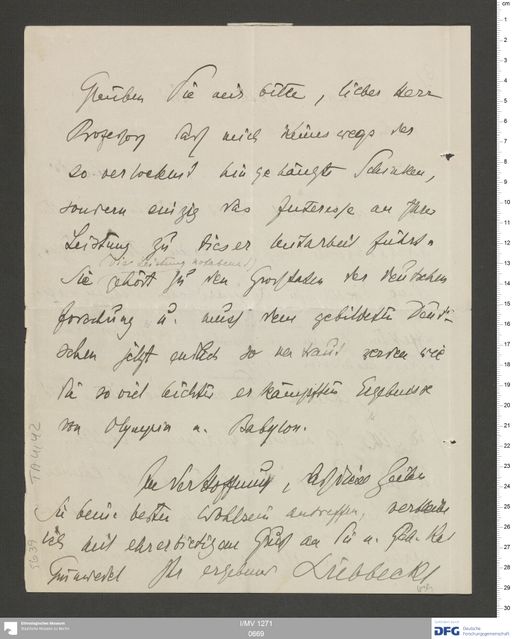 Glauben Sie mir bitte, lieber Herr
Professor daß mich keineswegs der
so verlockend hingehängte Schinken,
sondern einzig das Interesse an Ihrer
Leistung zu dieser Mitarbeit führt.
(die Leistung notabene!)
Sie gehört zu den Großtaten der deutschen
Forschung u. muss dem gebildeten Deut-
schen jetzt endlich so vertraut werden wie
die so viel leichter erkämpften Ergebnisse
von Olympia u. Babylon.
In der Hoffnung, daß diese Zeilen
Sie beim besten Wohlsein antreffen, verbleibe
ich mit ehrerbietigem Gruß an Sie u.
Ihr ergebener
TA 4142
5639
Ethnologisches Museum
Staatliche Museen zu Berlin
I/MV 1271
0669
DFG Deutsche
Forschungsgemeinschaft
cm
1
2
3
4
5
6
7
8
9
10
11
12
13
14
15
16
17
18
19
20
21
22
23
24
25
26
27
28
29
30